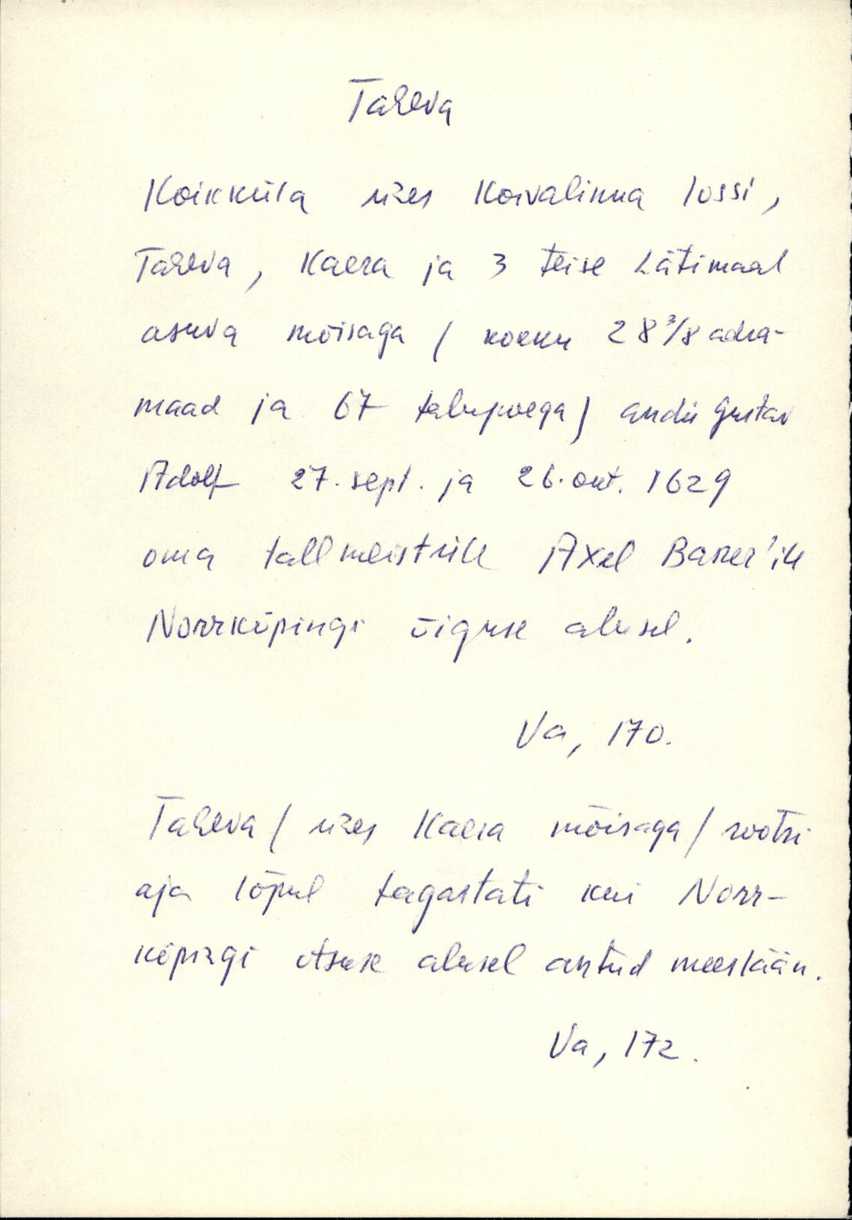 Taheva
Koikküla ühes Koivalinna lossi,
Taheva, Kaera ja 3 teise Lätimaal
asuva mõisaga / kokku 28 3/8 adra-
maad ja 67 talupoega / andis Gustav
Adolf 27. sept. ja 26. okt. 1629
oma tallmeistrile Axel Baner'ile
Norrköpingi õiguse alusel.
Va, 170.
Taheva / ühes Kaera mõisaga / rootsi
aja lõpul tagastati kui Norr-
köpingi otsuse alusel antud meeslään.
Va, 172.